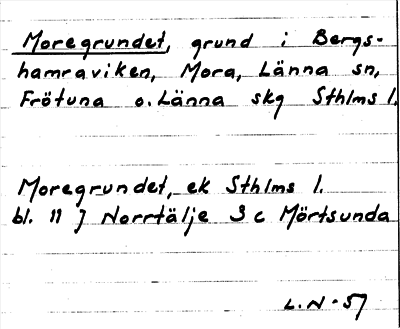 Moregrundet, grund i Bergs-
hamraviken, Mora, Länna sn,
Frötuna o. Länna skg Sthlms l.
Moregrundet, ek Sthlms l.
bl. 11 J Norrtälje S c Mörtsunda
L.N-57